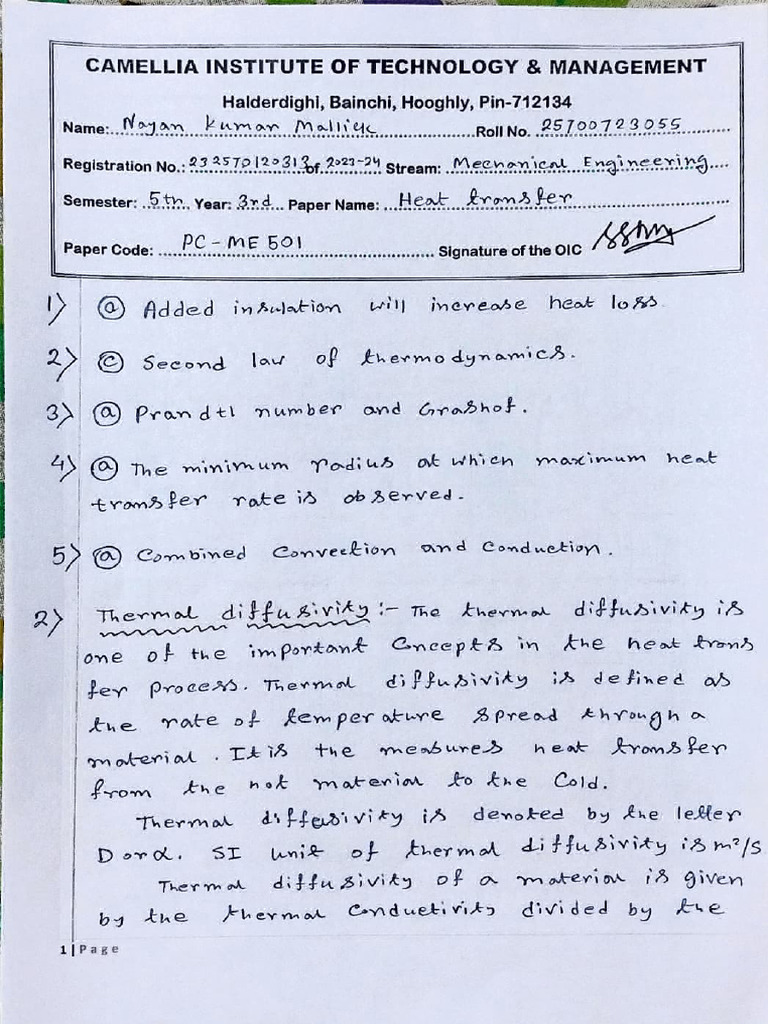 CAMELLIA INSTITUTE OF TECHNOLOGY & MANAGEMENT
Halderdighi, Bainchi, Hooghly, Pin-712134
Name: Nayan Kumar Mallick Roll No. 25700723055
Registration No.: 232570120313 of 2023-24 Stream: Mechanical Engineering
Semester: 5th Year: 3rd Paper Name: Heat transfer
Paper Code: PC-ME 501 Signature of the OIC
1) (a) Added insulation will increase heat loss
2) (c) Second law of thermodynamics.
3) (a) Prandtl number and Grashof.
4) (a) The minimum radius at which maximum heat
transfer rate is observed.
5) (a) Combined Convection and Conduction.
2) Thermal diffusivity :- The thermal diffusivity is
one of the important Concepts in the heat trans
fer process. Thermal diffusivity is defined as
the rate of temperature spread through a
material. It is the measures heat transfer
from the hot material to the Cold.
Thermal diffusivity is denoted by the letter
D or α. SI unit of thermal diffusivity is m²/s
Thermal diffusivity of a material is given
by the thermal Conductivity divided by the
1 | Page